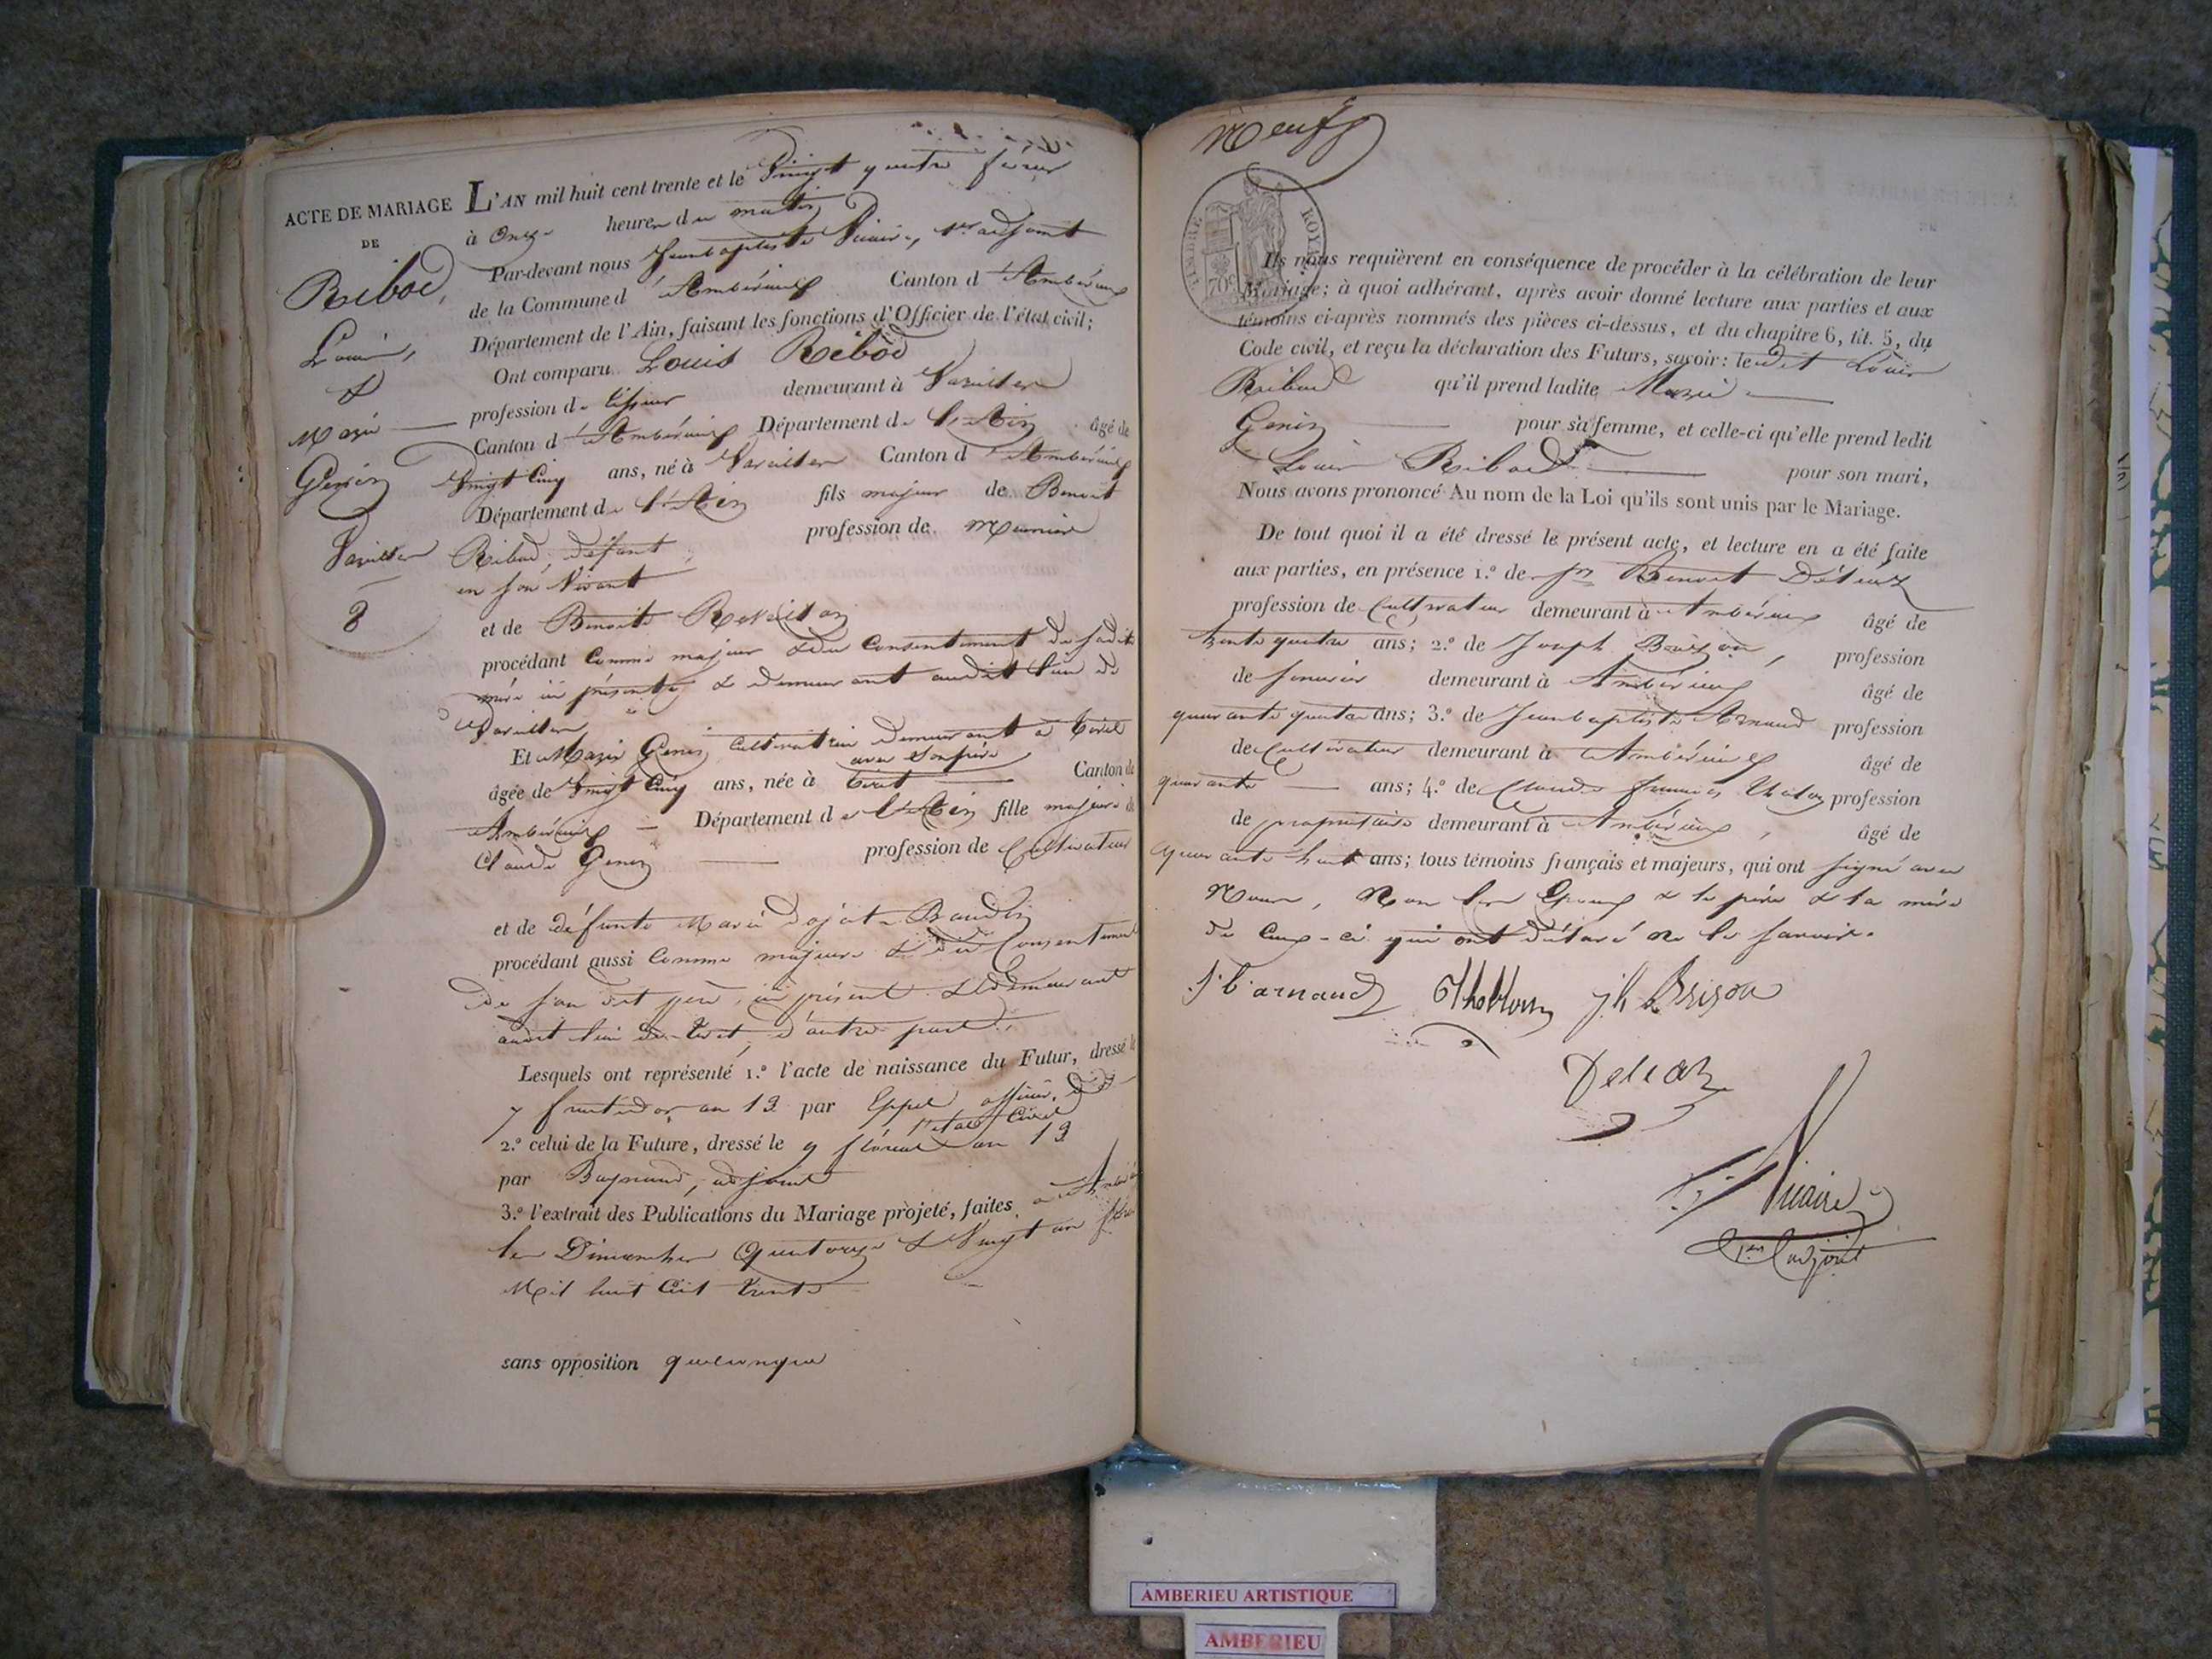 ACTE DE MARIAGE
DE
Ribod,
Louis,
&
Marie
Genin
Vareilles
8
L'AN mil huit cent trente et le Vingt quatre février
à Onze heures du matin
Par-devant nous Jeanbaptiste Vicaire, 1er adjoint
de la Commune d'Ambérieux Canton d'Ambérieux
Département de l'Ain, faisant les fonctions d'Officier de l'état civil;
Ont comparu Louis Ribod
profession de tisseur demeurant à Vareilles
Canton d'Ambérieux Département de l'Ain âgé de
Vingt Cinq ans, né à Vareilles Canton d'Ambérieux
Département de l'Ain fils majeur de Benoit
Ribod, défunt, profession de Meunier
en son Vivant
et de Benoite Revillon
procédant Comme majeur & du Consentement de sadite
mère ici présente & demeurant audit lieu de
Vareilles
Et Marie Genin Cultivatrice demeurant à Tiret
avec son père
âgée de Vingt Cinq ans, née à Tiret Canton de
Ambérieux Département de l'Ain fille majeure de
Claude Genin profession de Cultivateur
et de défunte Marie Baudin
procédant aussi Comme majeure & du Consentement
de son dit père, ici présent & demeurant
audit lieu de Tiret, d'autre part.
Lesquels ont représenté 1.º l'acte de naissance du Futur, dressé le
7 fructidor an 13 par Eppel officier de
l'état Civil
2.º celui de la Future, dressé le 9 floréal an 13
par adjoint
3.º l'extrait des Publications du Mariage projeté, faites à
les Dimanches Quatorze & Vingt un
Mil huit Cent trente
sans opposition quelconque
Neuf
TIMBRE ROYAL
70c
Ils nous requièrent en conséquence de procéder à la célébration de leur
Mariage; à quoi adhérant, après avoir donné lecture aux parties et aux
témoins ci-après nommés des pièces ci-dessus, et du chapitre 6, tit. 5, du
Code civil, et reçu la déclaration des Futurs, savoir: ledit Louis
Ribod qu'il prend ladite Marie
Genin pour sa femme, et celle-ci qu'elle prend ledit
Louis Ribod pour son mari,
Nous avons prononcé Au nom de la Loi qu'ils sont unis par le Mariage.
De tout quoi il a été dressé le présent acte, et lecture en a été faite
aux parties, en présence 1.º de Benoit
profession de Cultivateur demeurant à Ambérieux âgé de
trente quatre ans; 2.º de Joseph Brison, profession
de demeurant à Ambérieux âgé de
quarante quatre ans; 3.º de Jeanbaptiste Arnaud profession
de Cultivateur demeurant à Ambérieux âgé de
quarante ans; 4.º de Claude François profession
de propriétaire demeurant à Ambérieux, âgé de
quarante huit ans; tous témoins français et majeurs, qui ont signé avec
Nous, Non les Epoux & le père & la mère
de Ceux-ci qui ont déclaré ne le savoir.
J b arnaud jh Brison
Vicaire
1er adjoint
AMBERIEU ARTISTIQUE
AMBERIEU